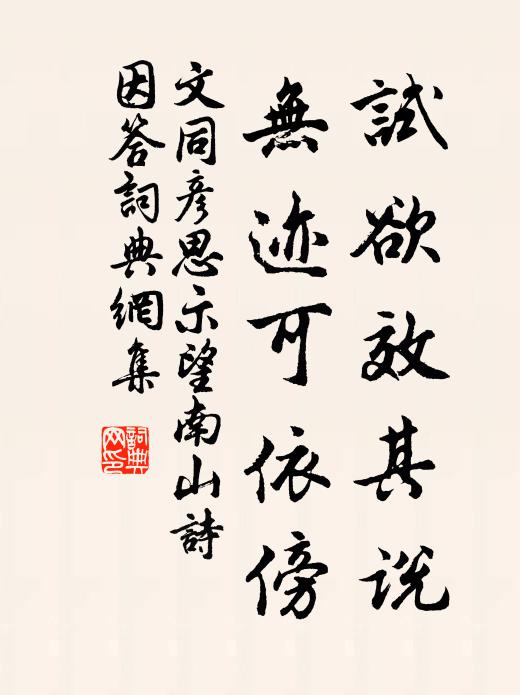 試欲效其説
無迹可依傍
文同彦思示望南山詩
因答詞典網集
詞典
网印